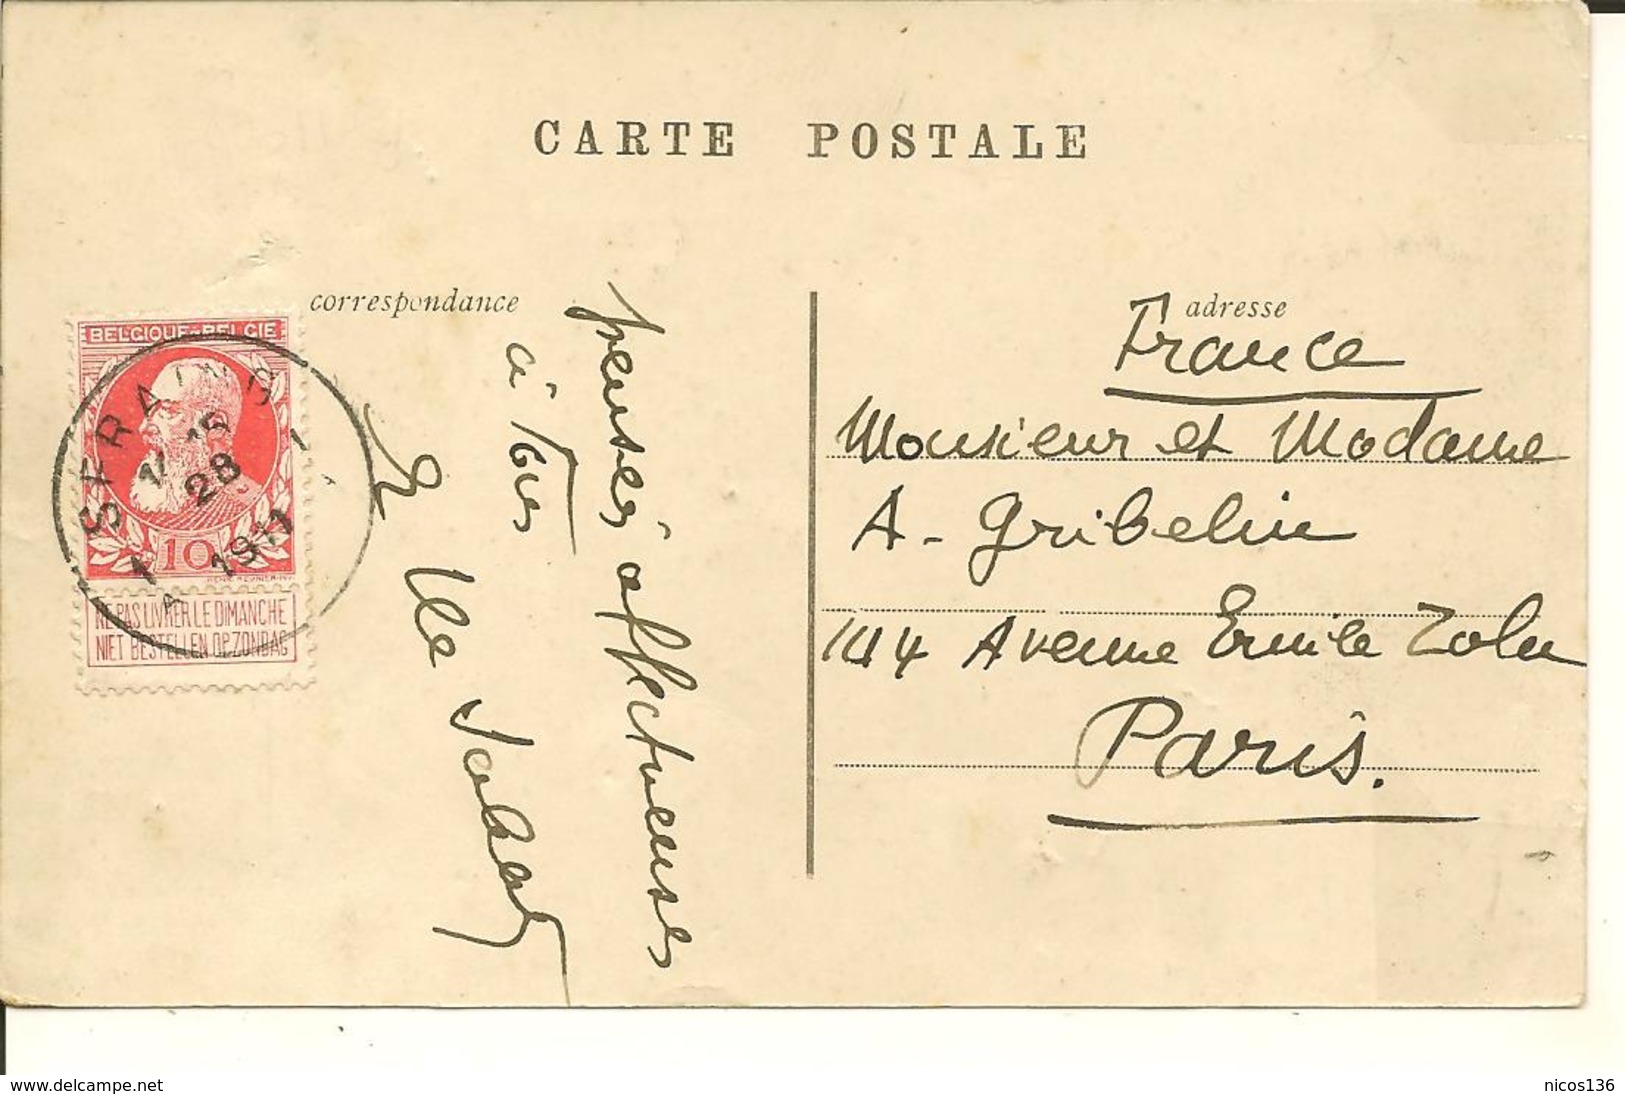 CARTE POSTALE
correspondance
adresse
BELGIQUE-BELGIE
SERAING
15
28
1911
10
NE PAS LIVRER LE DIMANCHE
NIET BESTELLEN OP ZONDAG
pensées affectueuses
à tous
France
Monsieur et Madame
A. Gribelin
144 Avenue Emile Zola
Paris.
www.delcampe.net
nicos136